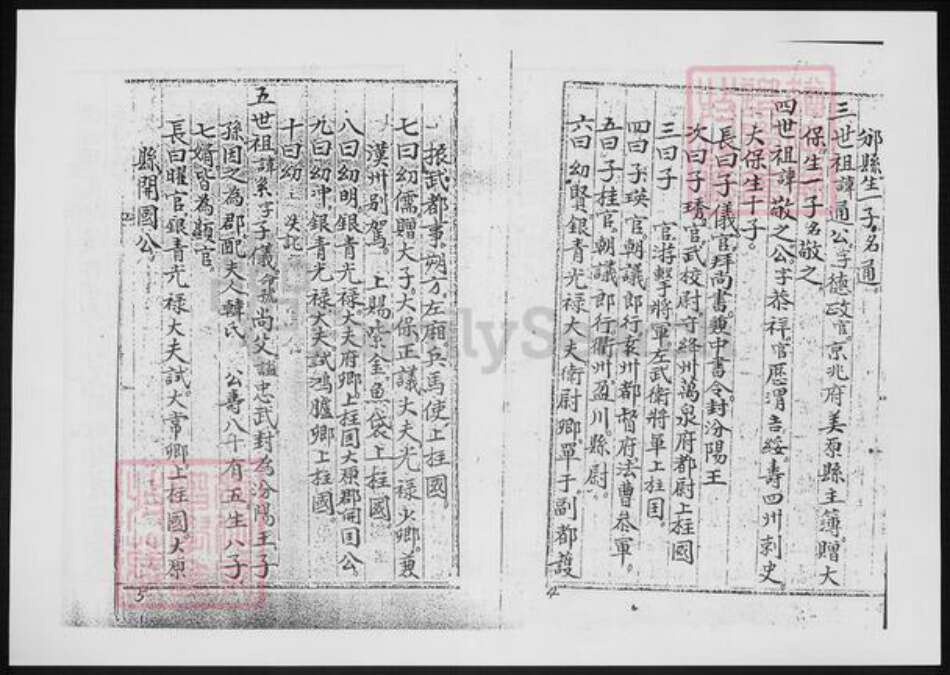 邠縣生一子名通。
三世祖諱通公字極政官京兆府美原縣主簿贈大
保生一子名敬之
四世祖諱敬之公字恭祥官歷渭吉綏壽四州刺史
大保生十子。
長曰子儀官拜尚書兼中書令封汾陽王
次曰子琇官武校尉守絳州萬泉府都尉上柱國
三曰子 官游擊將軍左武衛將軍上柱国。
四曰子瑛官朝議郎行袁州都督府法曹參軍。
五曰子桂官朝議郎行衢州盈川縣尉。
六曰幼賢銀青光禄大夫衛尉卿單于副都護
4
振武都事朔方左廂兵馬使上柱國。
七曰幼儒贈大子大保正議大夫光禄少卿兼
漢州别駕。 上賜紫金魚袋上柱國
八曰幼明銀青光禄大夫府卿上柱国大原郡開国公
九曰幼冲銀青光禄大夫試鴻臚卿上柱國。
十曰幼
五世祖諱 字子儀 尚父謚忠武封為汾陽王子
孫因之為郡配夫人韓氏 公壽八十有五生八子
七婿皆為顯官。
長曰曜官銀青光禄大夫試大常卿上柱國大原
縣開國公。
5